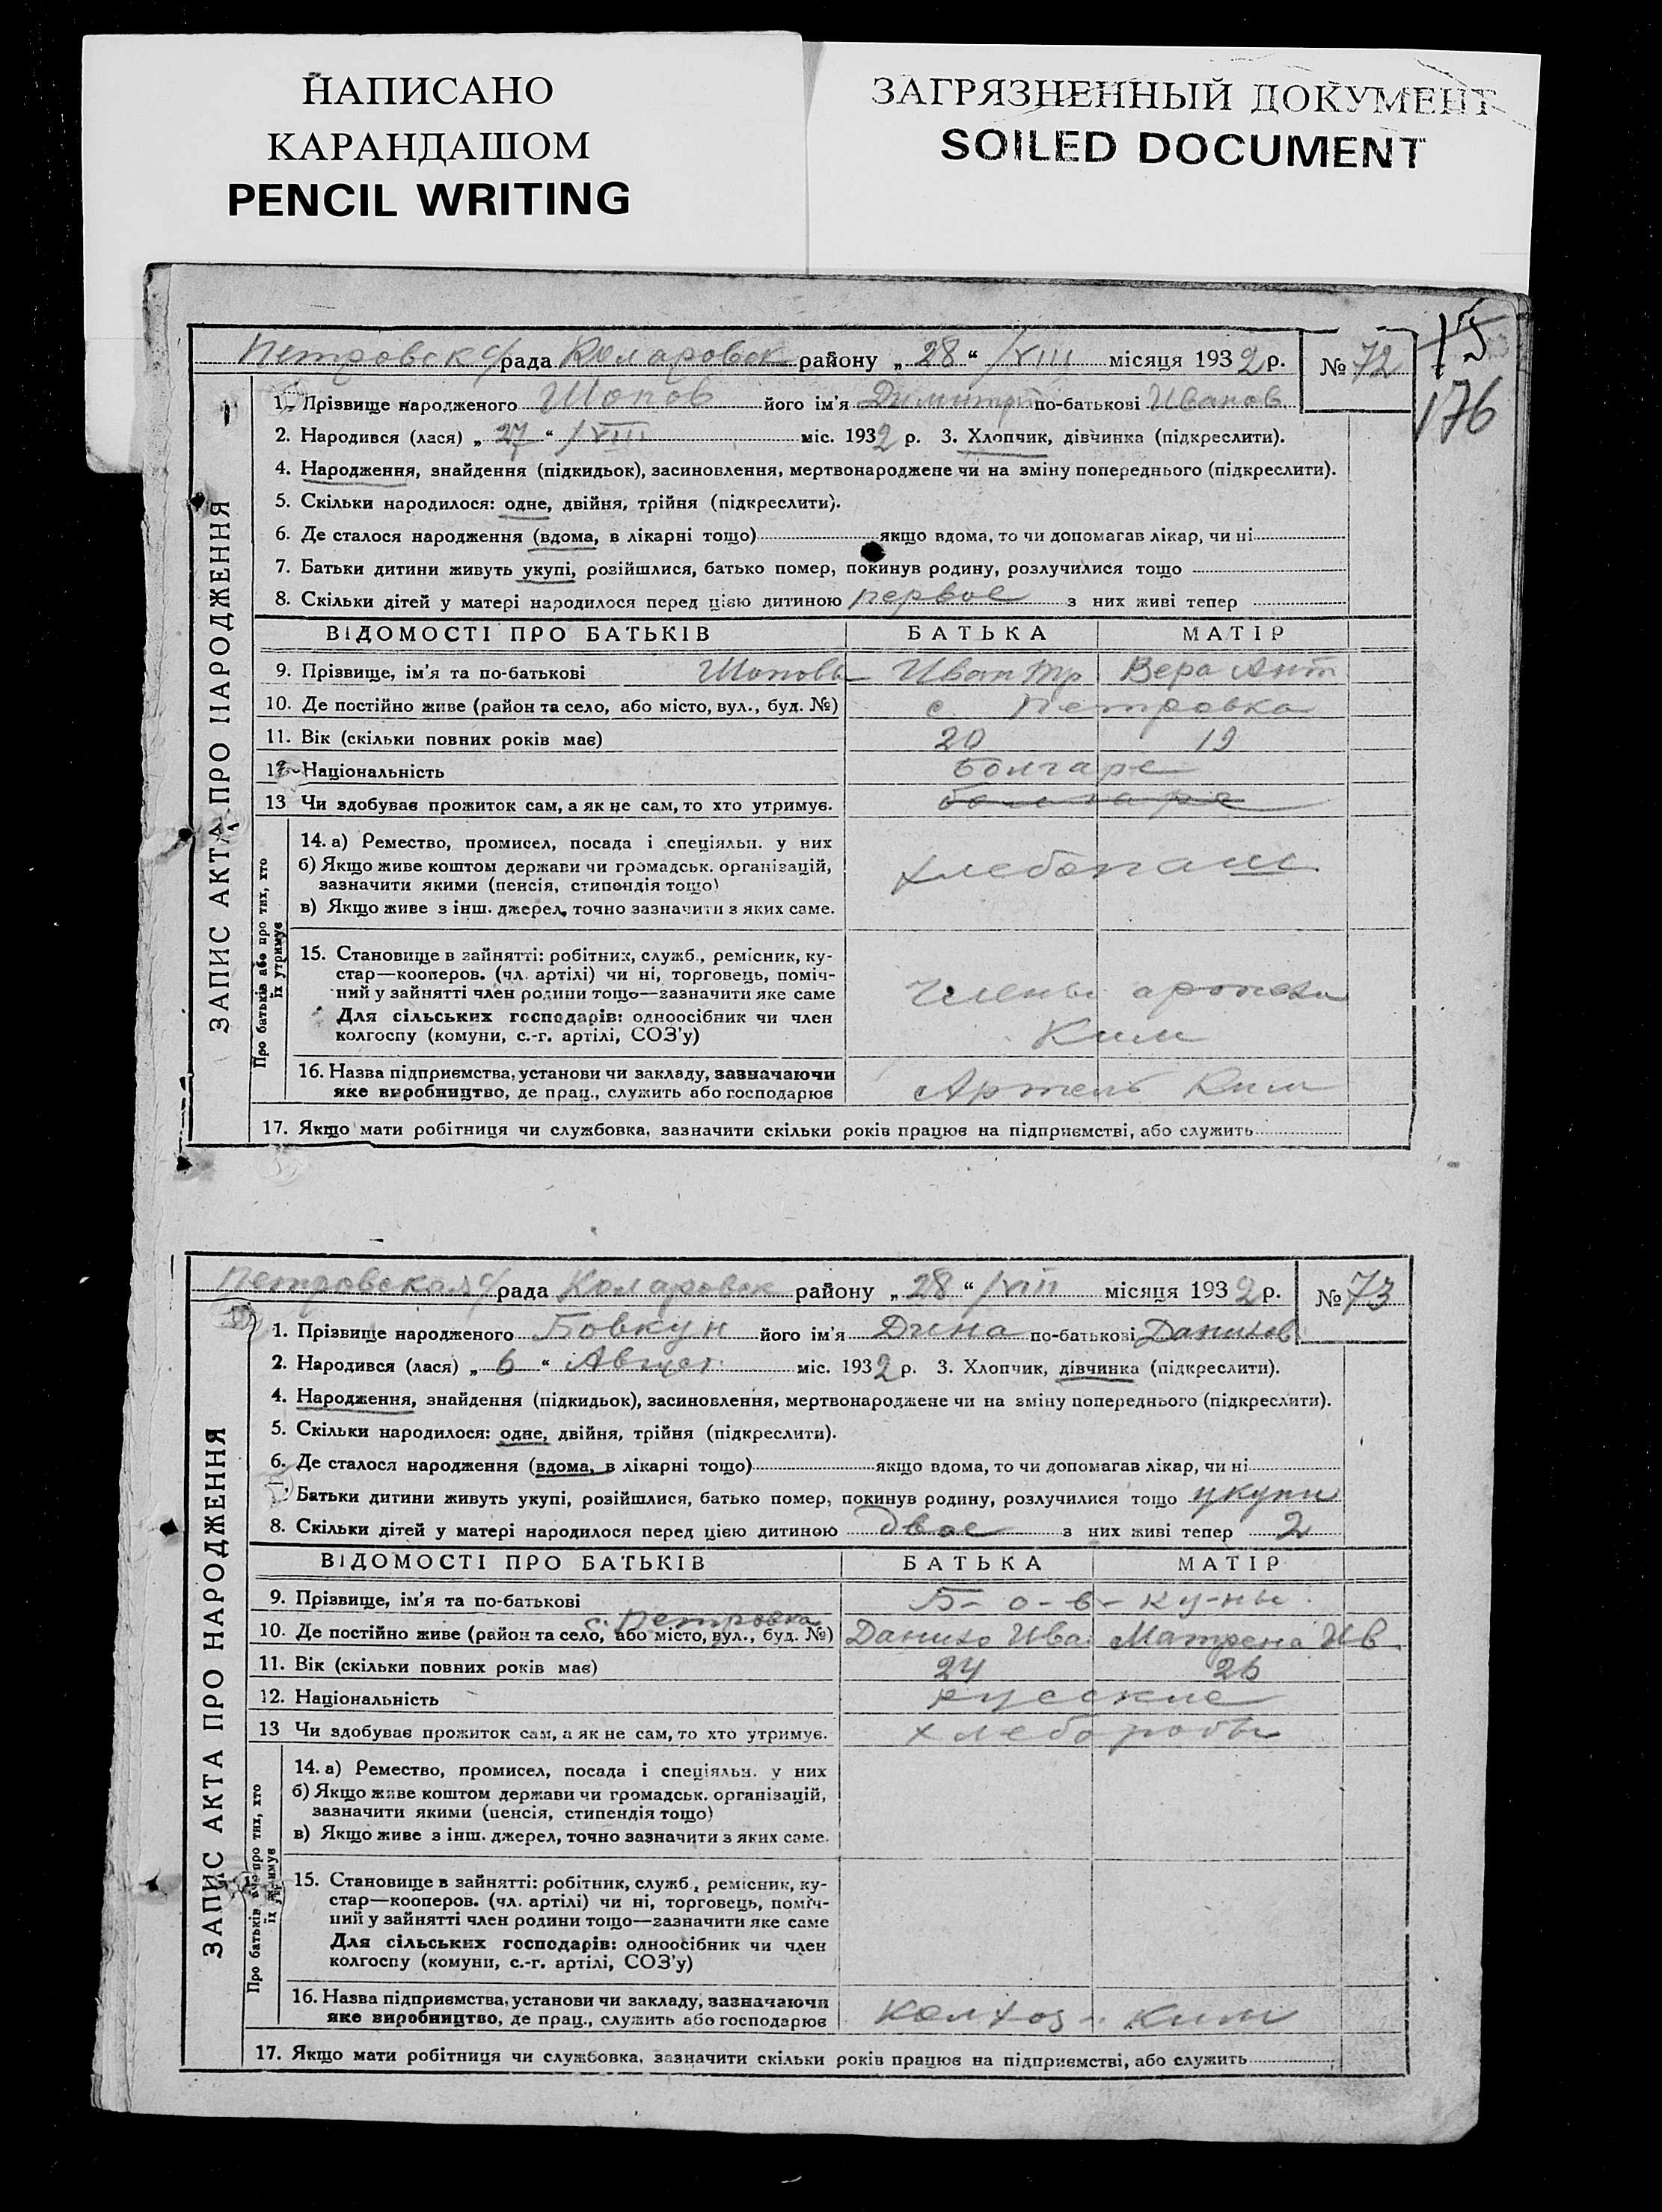 НАПИСАНО
КАРАНДАШОМ
PENCIL WRITING
ЗАГРЯЗНЕННЫЙ ДОКУМЕНТ
SOILED DOCUMENT
15
176
Петровск с/рада Коларовск району „ 28 “ /VIII місяця 1932 р. № 72
ЗАПИС АКТА ПРО НАРОДЖЕННЯ
1. Прізвище народженого Шопов його ім'я Димитрий по-батькові Иванов
2. Народився (лася) „ 27 “ /VIII міс. 1932 р. 3. Хлопчик, дівчинка (підкреслити).
4. Народження, знайдення (підкидьок), засиновлення, мертвонароджене чи на зміну попереднього (підкреслити).
5. Скільки народилося: одне, двійня, трійня (підкреслити).
6. Де сталося народження (вдома, в лікарні тощо) якщо вдома, то чи допомагав лікар, чи ні
7. Батьки дитини живуть укупі, розійшлися, батько помер, покинув родину, розлучилися тощо
8. Скільки дітей у матері народилося перед цією дитиною первое з них живі тепер
ВІДОМОСТІ ПРО БАТЬКІВ БАТЬКА МАТІР
9. Прізвище, ім'я та по-батькові Шоповы Иван Тр Вера Ант
10. Де постійно живе (район та село, або місто, вул., буд. №) с. Петровка
11. Вік (скільки повних років має) 20 19
12. Національність болгаре
13 Чи здобуває прожиток сам, а як не сам, то хто утримує. болгаре
Про батьків або про тих, хто їх утримує
14. а) Ремество, промисел, посада і спеціяльн. у них
б) Якщо живе коштом держави чи громадськ. організацій,
зазначити якими (пенсія, стипендія тощо)
хлебопаш
в) Якщо живе з інш. джерел, точно зазначити з яких саме.
15. Становище в зайнятті: робітник, служб., ремісник, ку-
стар—кооперов. (чл. артілі) чи ні, торговець, поміч-
ний у зайнятті член родини тощо—зазначити яке саме
Члены артели
Для сільських господарів: одноосібник чи член
колгоспу (комуни, с.-г. артілі, СОЗ'у)
Ким
16. Назва підприємства, установи чи закладу, зазначаючи
яке виробництво, де прац., служить або господарює
Артель Ким
17. Якщо мати робітниця чи службовка, зазначити скільки років працює на підприємстві, або служить
Петровская с/рада Коларовск району „ 28 “ /VIII місяця 1932 р. № 73
ЗАПИС АКТА ПРО НАРОДЖЕННЯ
1. Прізвище народженого Бовкун його ім'я Дина по-батькові Данилов
2. Народився (лася) „ 6 “ Август міс. 1932 р. 3. Хлопчик, дівчинка (підкреслити).
4. Народження, знайдення (підкидьок), засиновлення, мертвонароджене чи на зміну попереднього (підкреслити).
5. Скільки народилося: одне, двійня, трійня (підкреслити).
6. Де сталося народження (вдома, в лікарні тощо) якщо вдома, то чи допомагав лікар, чи ні
Батьки дитини живуть укупі, розійшлися, батько помер, покинув родину, розлучилися тощо укупи
8. Скільки дітей у матері народилося перед цією дитиною двое з них живі тепер 2
ВІДОМОСТІ ПРО БАТЬКІВ БАТЬКА МАТІР
9. Прізвище, ім'я та по-батькові Б-о-в-ку-ны
с. Петровка
10. Де постійно живе (район та село, або місто, вул., буд. №) Данило Ива Матрена Ив
11. Вік (скільки повних років має) 24 26
12. Національність русские
13 Чи здобуває прожиток сам, а як не сам, то хто утримує. хлеборобы
Про батьків або про тих, хто їх утримує
14. а) Ремество, промисел, посада і спеціяльн. у них
б) Якщо живе коштом держави чи громадськ. організацій,
зазначити якими (пенсія, стипендія тощо)
в) Якщо живе з інш. джерел, точно зазначити з яких саме.
15. Становище в зайнятті: робітник, служб., ремісник, ку-
стар—кооперов. (чл. артілі) чи ні, торговець, поміч-
ний у зайнятті член родини тощо—зазначити яке саме
Для сільських господарів: одноосібник чи член
колгоспу (комуни, с.-г. артілі, СОЗ'у)
16. Назва підприємства, установи чи закладу, зазначаючи
яке виробництво, де прац., служить або господарює
Колхоз - Ким
17. Якщо мати робітниця чи службовка, зазначити скільки років працює на підприємстві, або служить